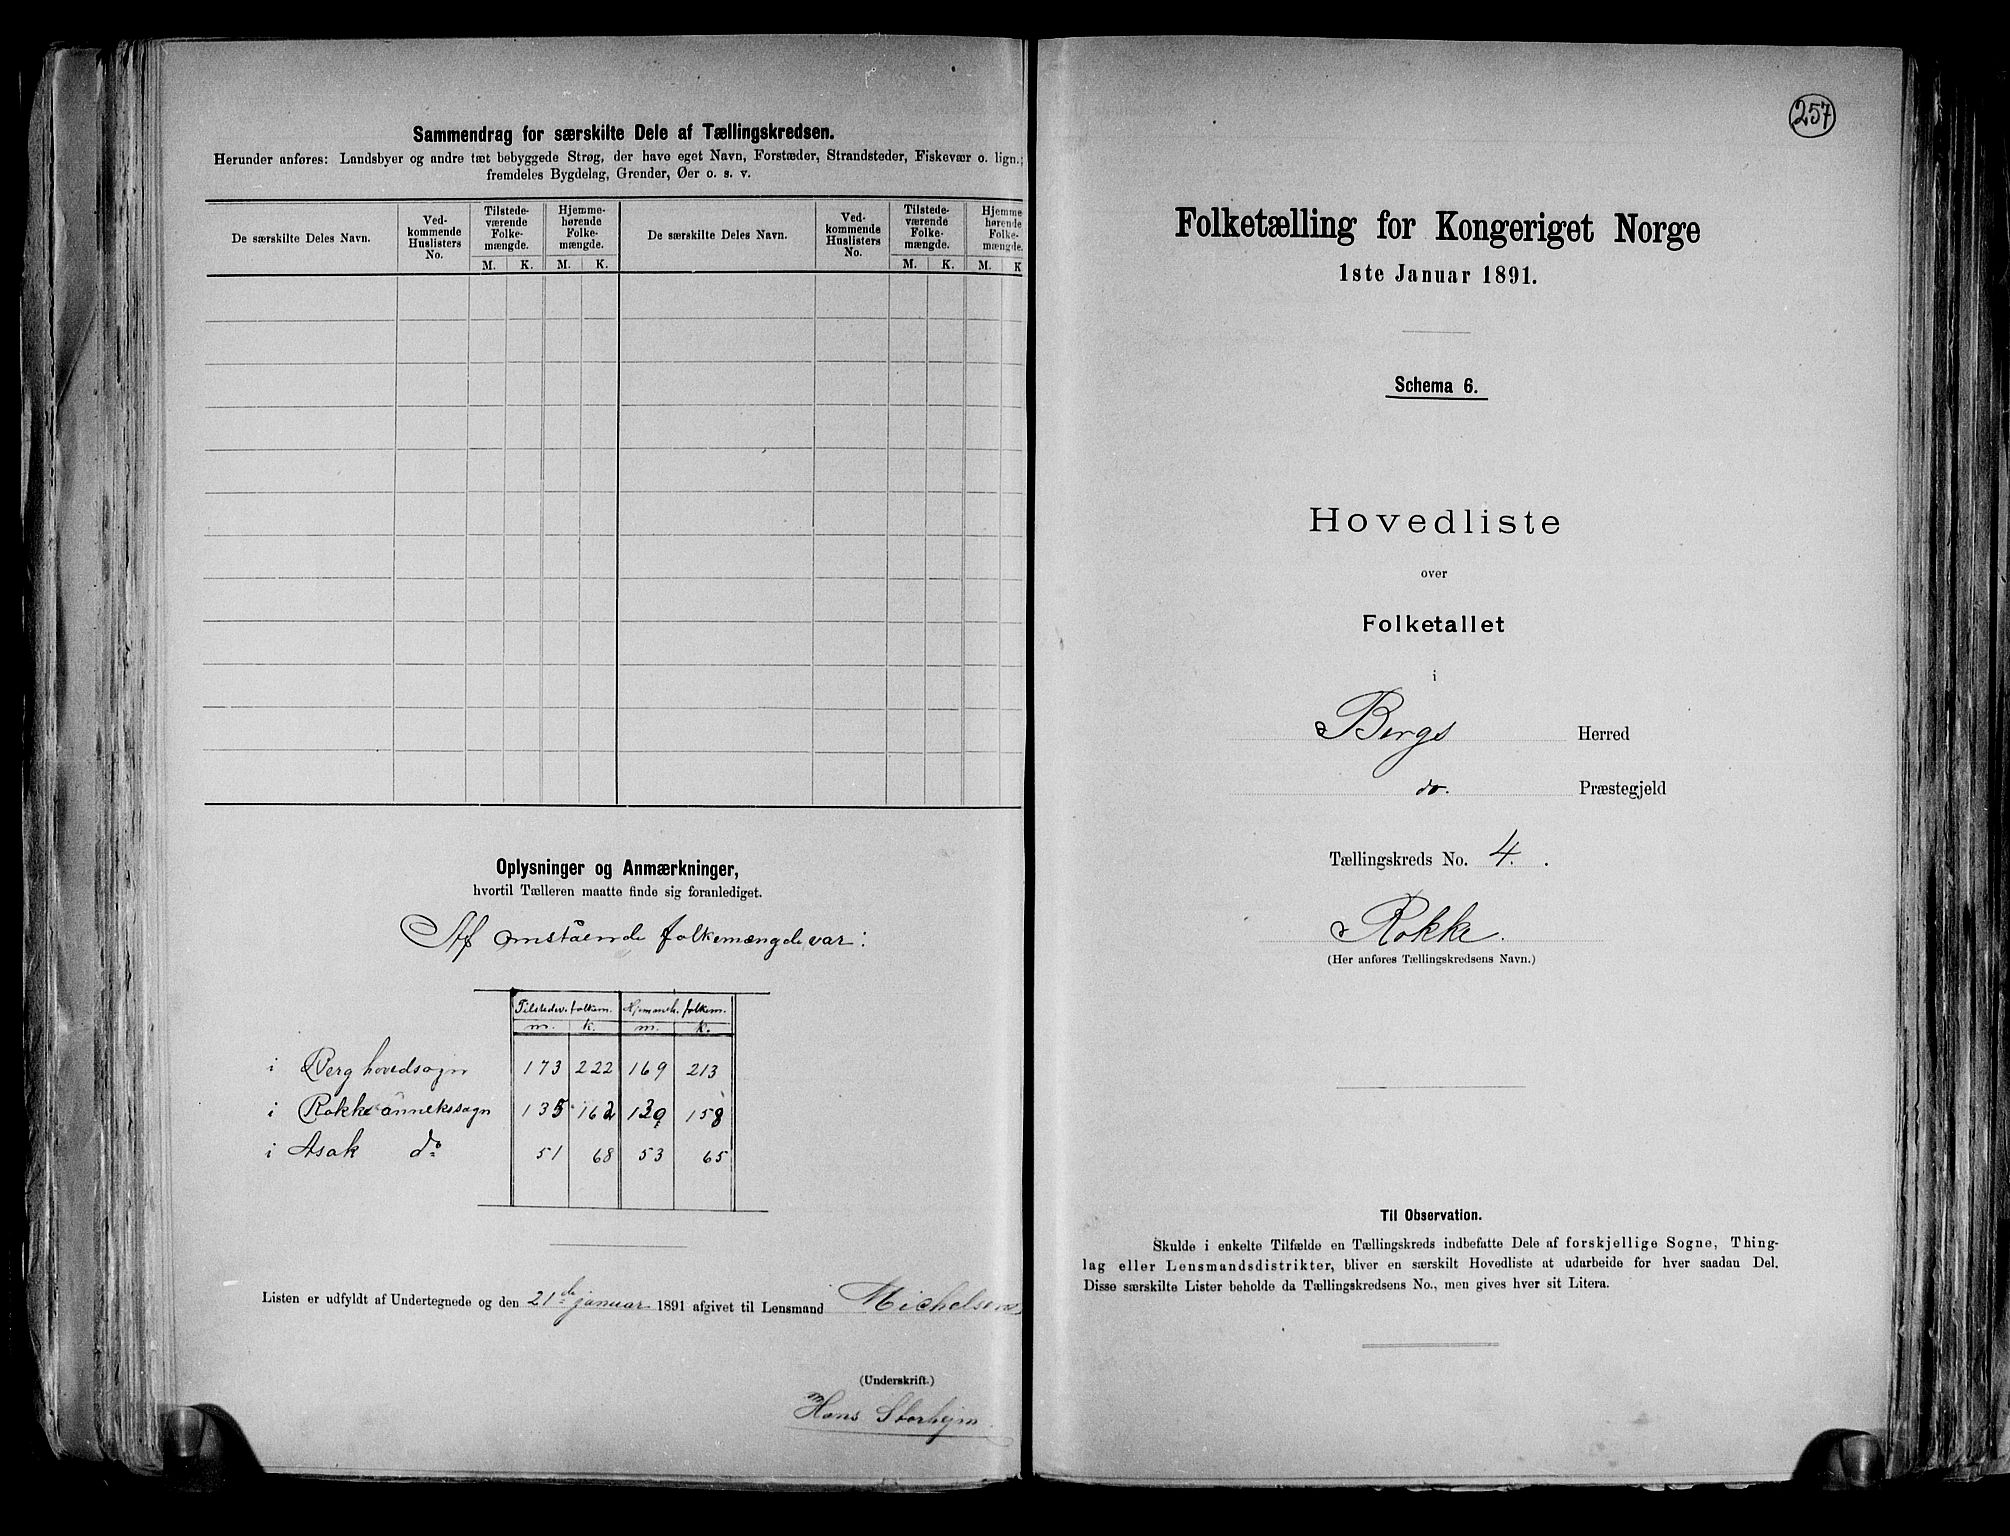 Sammendrag for særskilte Dele af Tællingskredsen.
Herunder anføres: Landsbyer og andre tæt bebyggede Strøg, der have eget Navn, Forstæder, Strandsteder, Fiskevær o. lign.;
fremdeles Bygdelag, Grender, Øer o. s. v.
De særskilte Deles Navn.
Ved-
kommende
Huslisters
No.
Tilstede-
værende
Folke-
mængde.
Hjemme-
hørende
Folke-
mængde.
De særskilte Deles Navn.
Ved-
kommende
Huslisters
No.
Tilstede-
værende
Folke-
mængde.
Hjemme
hørende
Folke-
mængde.
M. K. M. K. M. K. M. K
Oplysninger og Anmærkninger,
hvortil Tælleren maatte finde sig foranlediget.
Af omstående folkemængde var:
Tilstedev. folkem. Hjemmeh. folkem.
m. k. m. k.
i Berg hovedsogn 173 222 169 213
i Rokke annekssogn 135 162 139 158
i Asak do 51 68 53 65
Listen er udfyldt af Undertegnede og den 21de januar 1891 afgivet til Lensmand Michelsen
(Underskrift.)
Hans Storhejm
257
Folketælling for Kongeriget Norge
1ste Januar 1891.
Schema 6.
Hovedliste
over
Folketallet
i
Bergs Herred
do. Præstegjeld
Tællingskreds No. 4.
Rokke.
(Her anføres Tællingskredsens Navn.)
Til Observation.
Skulde i enkelte Tilfælde en Tællingskreds indbefatte Dele af forskjellige Sogne, Thing-
lag eller Lensmandsdistrikter, bliver en særskilt Hovedliste at udarbeide for hver saadan Del.
Disse særskilte Lister beholde da Tællingskredsens No., men gives hver sit Litera.